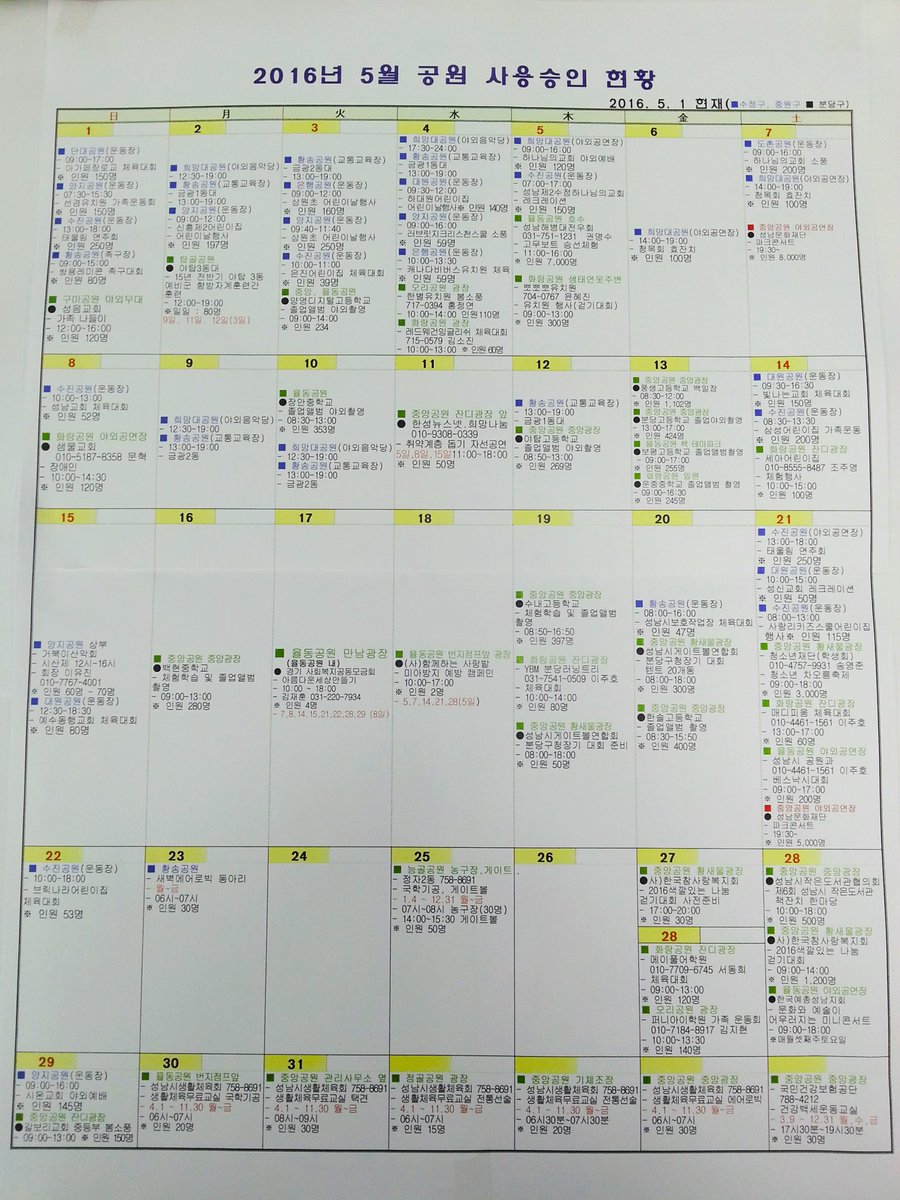 2016년 5월 공원 사용승인 현황
2016. 5. 1 현재(■수정구, 중원구 ■ 분당구)
日 月 火 水 木 金 土
1
■ 단대공원(운동장)
- 09:00-17:00
- 아가페장로교 체육대회
※ 인원 150명
■ 양지공원(운동장)
- 07:30-15:30
- 선경유치원 가족운동회
※ 인원 150명
■ 수진공원(운동장)
- 13:00-18:00
- 태울림 연주회
※ 인원 250명
■ 황송공원(족구장)
- 09:00-15:00
- 쌍용레미콘 족구대회
※ 인원 80명
■ 구미공원 야외무대
● 성음교회
- 가족 나들이
- 12:00-16:00
※ 인원 120명
2
■ 희망대공원(야외음악당)
- 12:30-19:00
■ 황송공원(교통교육장)
- 금광1동대
- 13:00-19:00
■ 양지공원(운동장)
- 09:00-12:00
- 신흥제2어린이집
- 어린이날행사
※ 인원 197명
■ 탑골공원
● 야탑3동대
- 15년 전반기 야탑 3동
예비군 향방자계훈련간
훈련
- 12:00-19:00
※일일 : 80명
9일, 11일, 12일(3일)
3
■ 황송공원(교통교육장)
- 금광2동대
- 13:00-19:00
■ 은행공원(운동장)
- 09:00-12:00
- 상원초 어린이날행사
※ 인원 160명
■ 양지공원(운동장)
- 09:40-11:40
- 상원초 어린이날행사
※ 인원 250명
■ 수진공원(운동장)
- 10:00-11:00
- 은진어린이집 체육대회
※ 인원 39명
■ 중앙, 율동공원
● 양영디지털고등학교
- 졸업앨범 야외촬영
- 09:00-14:00
※ 인원 234
4
■ 희망대공원(야외음악당)
- 17:30-24:00
■ 황송공원(교통교육장)
- 금광1동대
- 13:00-19:00
■ 대원공원(운동장)
- 09:30-12:00
- 하대원어린이집
- 어린이날행사※ 인원 140명
■ 양지공원(운동장)
- 09:00-16:00
- 러브릿지크리스천스쿨 소풍
※ 인원 59명
■ 은행공원(운동장)
- 09:30-13:30
- 캐나다비버스유치원 체육
※ 인원 59명
■ 오리공원 광장
- 한별유치원 봄소풍
- 717-0394 홍정연
- 10:00~14:00 인원110명
■ 화랑공원 광장
- 레드웨건잉글리쉬 체육대회
- 715-0579 김소진
- 10:00~13:00 ※ 인원 60명
5
■ 희망대공원(야외공연장)
- 09:00-16:00
- 하나님의교회 야외예배
※ 인원 120명
■ 수진공원(운동장)
- 07:00-17:00
- 성남제2수정하나님의교회
- 레크레이션
※ 인원 150명
■ 율동공원 호수
- 성남해병대전우회
- 031-751-1231 권명수
- 고무보트 승선체험
- 11:00~16:00
※ 인원 7,000명
■ 화랑공원 생태연못주변
- 뽀뽀뽀유치원
- 704-0767 윤혜진
- 유치원 행사(걷기대회)
- 09:00-13:00
※ 인원 300명
6
■ 희망대공원(야외공연장)
- 14:00-19:00
- 청목회 효잔치
※ 인원 100명
7
■ 도촌공원(운동장)
- 09:00-16:00
- 하나님의교회 소풍
※ 인원 200명
■ 희망대공원(야외공연장)
- 14:00-19:00
- 청목회 효잔치
※ 인원 100명
■ 중앙공원 야외공연장
● 성남문화재단
- 파크콘서트
- 19:30-
※ 인원 8,000명
8
■ 수진공원(운동장)
- 10:00-13:00
- 성남교회 체육대회
※ 인원 52명
■ 화랑공원 야외공연장
● 샘물교회
- 010-5187-8358 문혁
- 장애인
- 10:00-14:30
※ 인원 120명
9
■ 희망대공원(야외음악당)
- 12:30-19:00
■ 황송공원(교통교육장)
- 13:00-19:00
- 금광2동
10
■ 율동공원
● 장안중학교
- 졸업앨범 야외촬영
- 08:30-13:00
※ 인원 353명
■ 희망대공원(야외음악당)
- 12:30-19:00
■ 황송공원(교통교육장)
- 13:00-19:00
- 금광2동
11
■ 중앙공원 잔디광장 옆
● 한성뉴스넷.희망나눔
- 010-9308-0339
- 취약계층 돕기 자선공연
5일,8일,15일11:00-18:00
※ 인원 50명
12
■ 황송공원(교통교육장)
- 13:00-19:00
- 금광1동대
■ 중앙공원 중앙광장
● 야탑고등학교
- 졸업앨범 야외촬영
- 08:50-13:00
※ 인원 269명
13
■ 중앙공원 중앙광장
● 풍생고등학교 백일장
- 08:30-12:00
※ 인원 1,102명
■ 중앙공원 중앙광장
● 분당고등학교 졸업야외촬영
- 13:00-17:00
※ 인원 424명
■ 율동공원 책 테마파크
● 보평고등학교 졸업앨범촬영
- 09:00-17:00
※ 인원 255명
■ 화랑공원 일원
● 운중중학교 졸업앨범 촬영
- 09:00-16:30
※ 인원 245명
14
■ 대원공원(운동장)
- 09:30-16:30
- 빛나는교회 체육대회
※ 인원 150명
■ 수진공원(운동장)
- 08:30-13:30
- 삼성어린이집 가족운동
※ 인원 200명
■ 화랑공원 잔디광장
- 세아어린이집
- 010-8555-8487 조주영
- 체험행사
- 10:00-15:00
※ 인원 100명
15
■ 양지공원 상부
- 거북이산악회
- 시산제 12시~16시
- 회장 이유진
- 010-7767-4001
※ 인원 60명 ~ 70명
■ 대원공원(운동장)
- 12:30-18:30
- 예수동행교회 체육대회
※ 인원 80명
16
■ 중앙공원 중앙광장
● 백현중학교
- 체험학습 및 졸업앨범
촬영
- 09:00-13:00
※ 인원 280명
17
■ 율동공원 만남광장
(율동공원 내)
● 경기 사회복지공동모금회
- 아름다운세상만들기
- 10:00 ~ 18:00
- 김재훈 031-220-7934
※ 인원 4명
- 7,8,14,15,21,22,28,29 (8일)
18
■ 율동공원 번지점프앞 광장
● (사)함께하는 사랑밭
- 미아방지 예방 캠페인
- 10:00-17:00
※ 인원 2명
- 5,7,14,21,28(5일)
19
■ 중앙공원 중앙광장
● 수내고등학교
- 체험학습 및 졸업앨범
촬영
- 08:50-16:50
※ 인원 397명
■ 화랑공원 잔디광장
- YBM 분당러닝트리
- 031-7541-0509 이주호
- 체육대회
- 10:00~14:00
※ 인원 80명
■ 중앙공원 황새울광장
● 성남시게이트볼연합회
- 분당구청장기 대회 준비
- 08:00-18:00
※ 인원 50명
20
■ 황송공원(운동장)
- 08:00-16:00
- 성남시보호작업장 체육대회
※ 인원 47명
■ 중앙공원 황새울광장
● 성남시게이트볼연합회
- 분당구청장기 대회
- 텐트 20개동
- 08:00 ~ 18:00
※ 인원 300명
■ 중앙공원 중앙광장
● 한솔고등학교
- 졸업앨범 촬영
- 08:30-15:50
※ 인원 400명
21
■ 수진공원(야외공연장)
- 13:00-18:00
- 태울림 연주회
※ 인원 250명
■ 대원공원(운동장)
- 10:00-15:00
- 성신교회 레크레이션
※ 인원 50명
■ 수진공원(운동장)
- 08:00-13:00
- 사랑리키즈스쿨어린이집
행사※ 인원 115명
■ 중앙공원 황새울광장
- 청소년재단(학생회)
- 010-4757-9931 송명준
- 청소년 차오름축제
- 09:00-18:00
※ 인원 3,000명
■ 화랑공원 잔디광장
- 매디피움 체육대회
- 010-4461-1561 이주호
- 13:00~17:00
※ 인원 60명
■ 율동공원 야외공연장
- 성남시 공원과
- 010-4461-1561 이주호
- 베스낚시대회
- 09:00~17:00
※ 인원 200명
■ 중앙공원 야외공연장
● 성남문화재단
- 파크콘서트
- 19:30-
※ 인원 5,000명
22
■ 수진공원(운동장)
- 10:00-18:00
- 브릭나라어린이집
체육대회
※ 인원 53명
23
■ 황송공원
- 새벽에어로빅 동아리
- 월~금
- 06시~07시
※ 인원 30명
24
25
■ 능골공원 농구장,게이트
- 정자2동 758-8691
- 국학기공, 게이트볼
- 1.4 ~ 12.31 월~금
- 07시~08시 농구장(30명)
- 14:00~15:30 게이트볼
※ 인원 50명
26
27
■ 중앙공원 황새울광장
● 사)한국참사랑복지회
- 2016색깔있는 나눔
걷기대회 사전준비
- 17:00-20:00
※ 인원 30명
28
■ 화랑공원 잔디광장
- 메이풀어학원
- 010-7709-6745 서동희
- 체육대회
- 09:00-13:00
※ 인원 120명
■ 오리공원 광장
- 퍼니아이학원 가족 운동회
- 010-7184-8917 김지현
- 10:00-13:30
※ 인원 140명
28
■ 중앙공원 중앙광장
● 성남시작은도서관협의회
- 제6회 성남시 작은도서관
책잔치 한마당
- 10:00-18:00
※ 인원 500명
■ 중앙공원 황새울광장
● 사)한국참사랑복지회
- 2016색깔있는 나눔
걷기대회
- 09:00-14:00
※ 인원 1,200명
■ 율동공원 야외공연장
● 한국예총성남지회
- 문화와 예술이
어우러지는 미니콘서트
- 09:00-18:00
※매월셋째주토요일
29
■ 양지공원(운동장)
- 09:00-16:00
- 시온교회 야외예배
※ 인원 145명
■ 중앙공원 잔디광장
● 갈보리교회 중등부 봄소풍
- 09:00-13:00 ※ 인원 150명
30
■ 율동공원 번지점프앞
- 성남시생활체육회 758-8691
- 생활체육무료교실 국학기공
- 4.1 ~ 11.30 월~금
- 06시~07시
※ 인원 20명
31
■ 중앙공원 관리사무소 옆
- 성남시생활체육회 758-8691
- 생활체육무료교실 택견
- 4.1 ~ 11.30 월~금
- 08시~09시
※ 인원 30명
■ 정골공원 광장
- 성남시생활체육회 758-8691
- 생활체육무료교실 전통선술
- 4.1 ~ 11.30 월~금
- 06시~07시
※ 인원 15명
■ 중앙공원 기체조장
- 성남시생활체육회 758-8691
- 생활체육무료교실 전통선술
- 4.1 ~ 11.30 월~금
- 06시30분~07시30분
※ 인원 20명
■ 중앙공원 중앙광장
- 성남시생활체육회 758-8691
- 생활체육무료교실 에어로빅
- 4.1 ~ 11.30 월~금
- 06시~07시
※ 인원 30명
■ 중앙공원 중앙광장
- 국민건강보험공단
- 788-4212
- 건강백세운동교실
- 3.9 ~ 12.31 월,수,금
- 17시30분~19시30분
※ 인원 30명